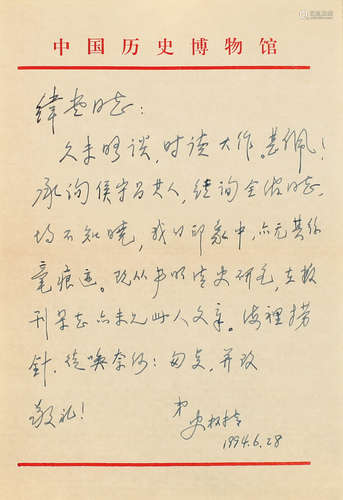 中国历史博物馆
纬堂同志：
久未晤谈，时读大作。甚佩！
承询侯守吕其人，经询全馆同志，
均不知晓，我的印象中，亦无其丝
毫痕迹。现从事明清史研究，在报
刊杂志亦未见此人文章。海裡捞
针，徒唤奈何！匆复，并致
敬礼！
弟
史树青
1994.6.28